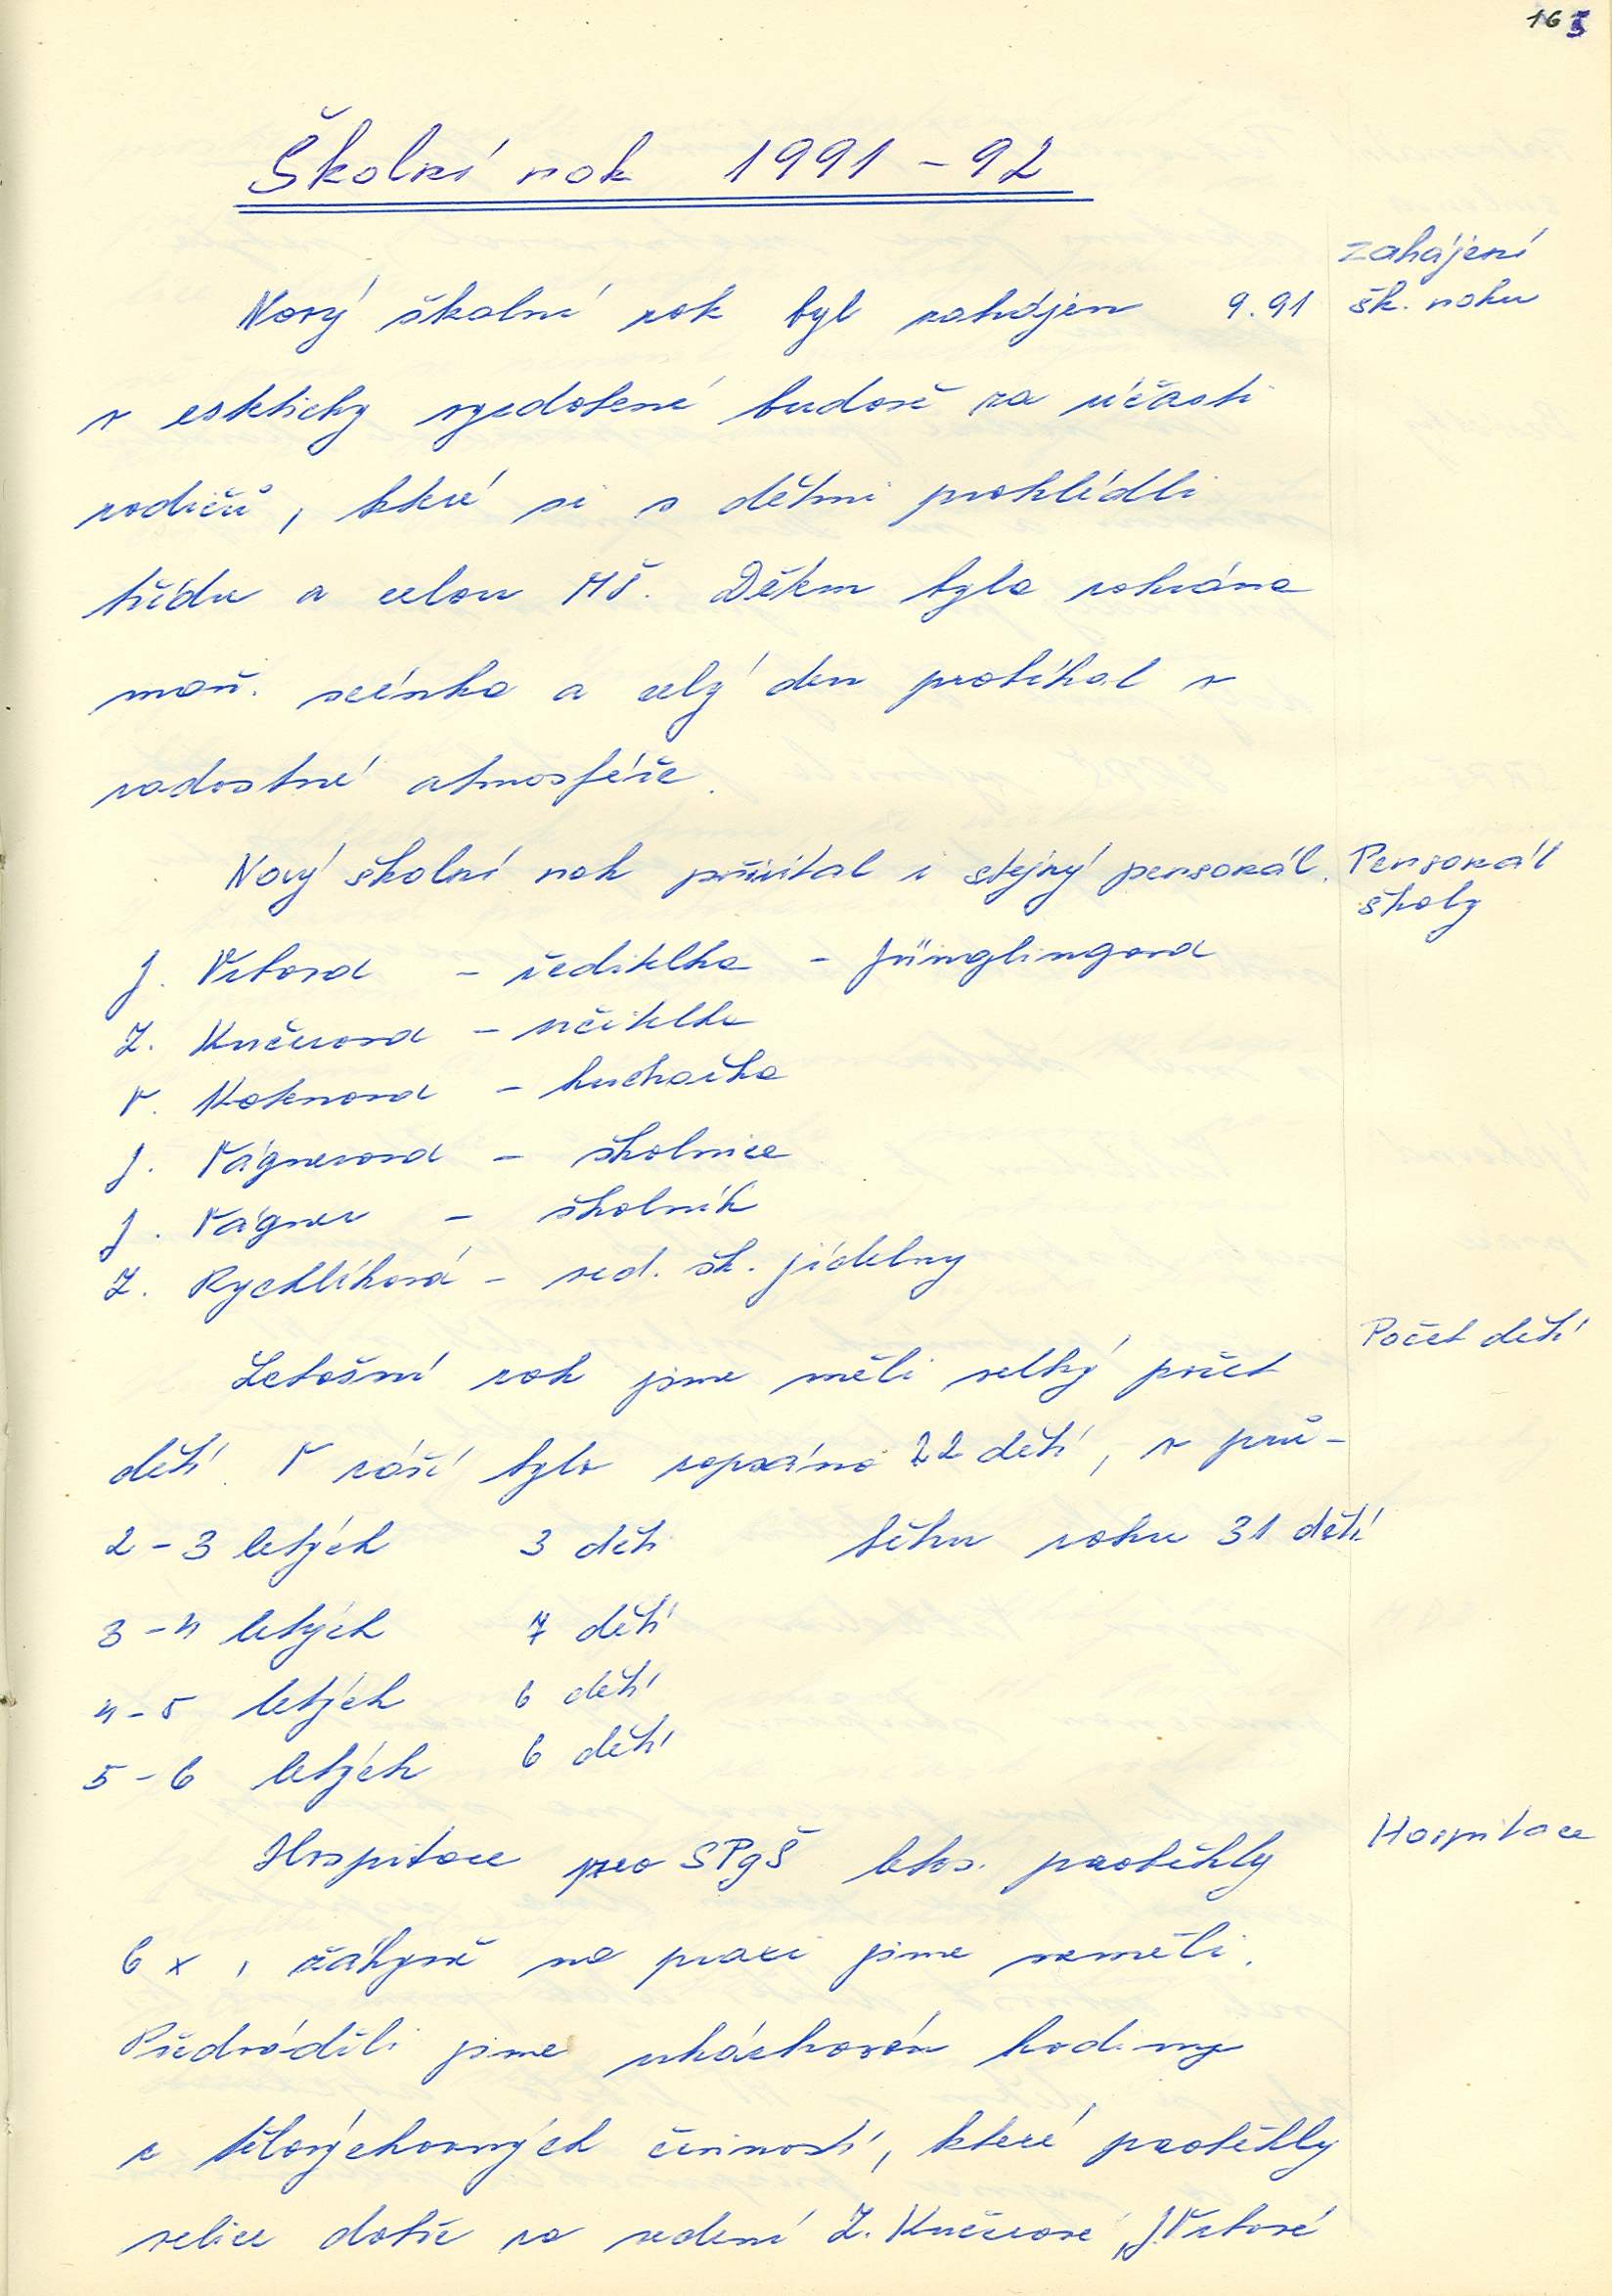 165
Školní rok 1991-92
zahájení
šk. roku
Nový školní rok byl zahájen 9.91
v esteticky vyzdobené budově za účasti
rodičů, které si s dětmi prohlédli
třídu a celou MŠ. Dětem byla zahrána
maň. scénka a celý den probíhal v
radostné atmosféře.
Nový školní rok přivítal i stejný personál.
Personál
školy
J. Vrbová - ředitelka - Jünglingová
Z. Kučerová - učitelka
V. Kotenová - kuchařka
J. Vágnerová - školnice
J. Vágner - školník
Z. Rychlíková - ved. šk. jídelny
Počet dětí
Letošní rok jsme měli velký počet
dětí. V září bylo zapsáno 22 dětí, v prů-
2-3 letých 3 děti běhu roku 31 dětí
3-4 letých 7 dětí
4-5 letých 6 dětí
5-6 letých 6 dětí
Hospitace
Hospitace pro SPgŠ letos proběhly
6 x, žákyně na praxi jsme neměli.
Předváděli jsme hodiny
z tělovýchovných činností, které proběhly
velice dobře za vedení Z. Kučerové, J. Vrbové